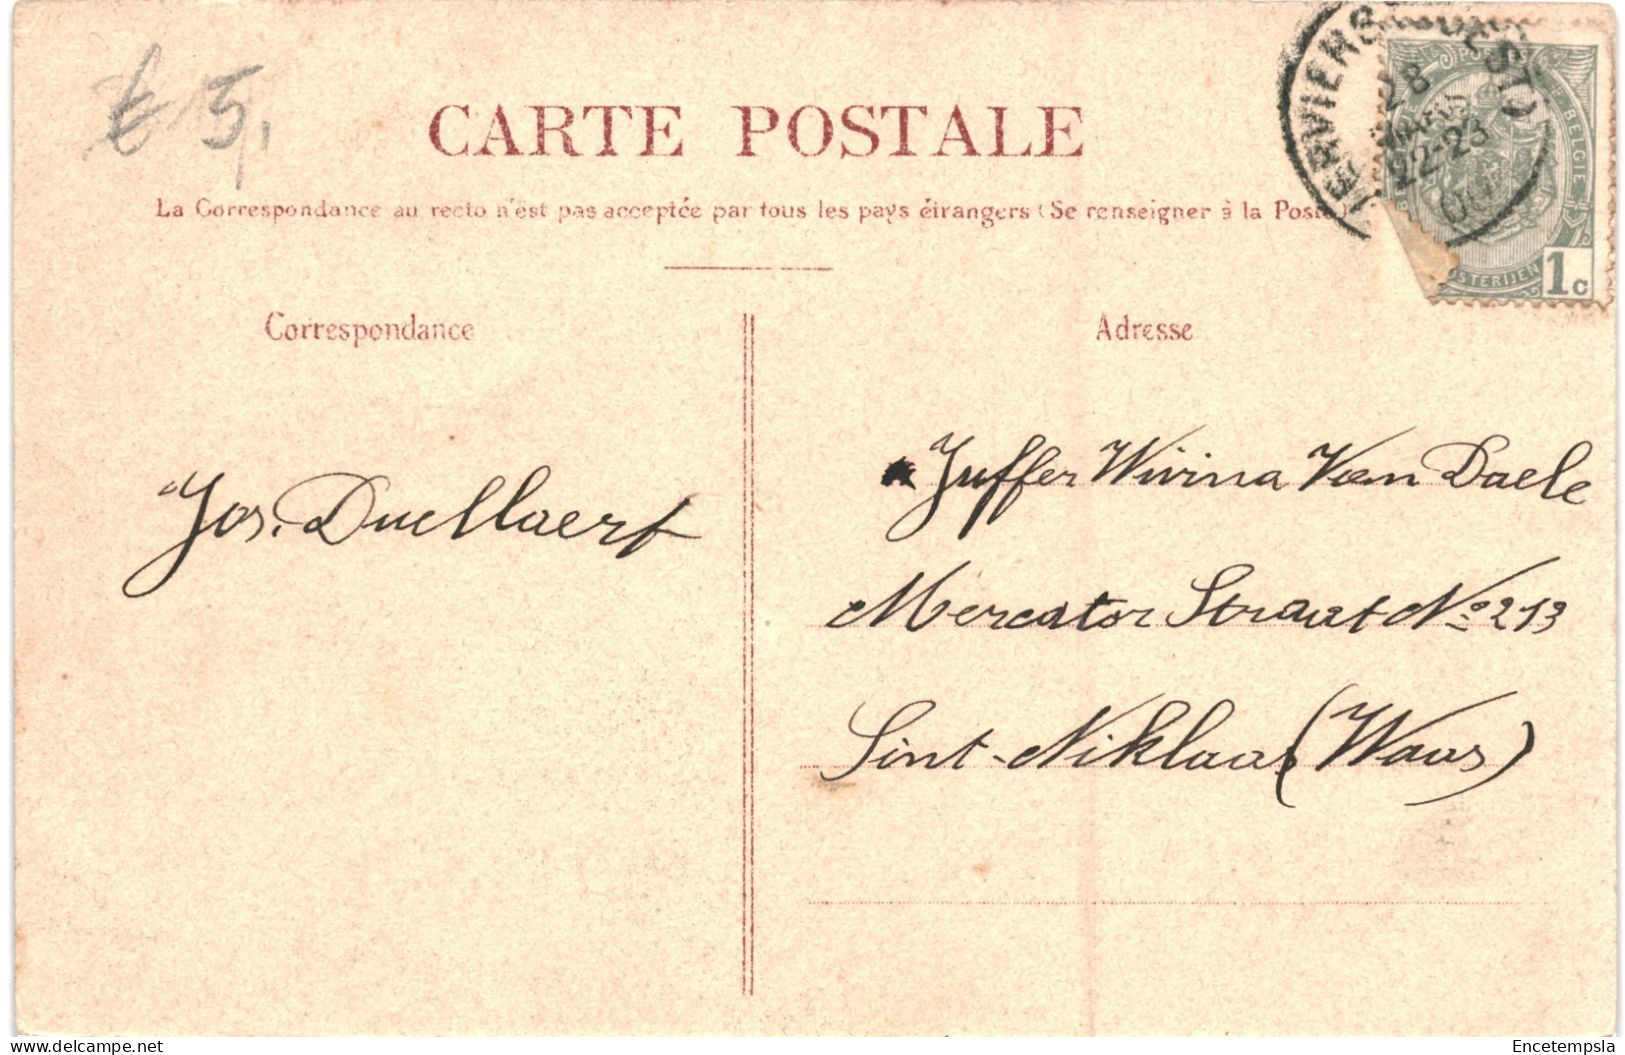 € 5,
CARTE POSTALE
La Correspondance au recto n'est pas acceptée par tous les pays étrangers (Se renseigner à la Poste)
Correspondance
Adresse
VERVIERS
28
22-23
BELGIE
OSTERIJEN
1c
Jos. Duellaert
Juffer Wivina Van Daele
Mercator Straat No 213
Sint-Niklaas (Waas)
Encetempsla